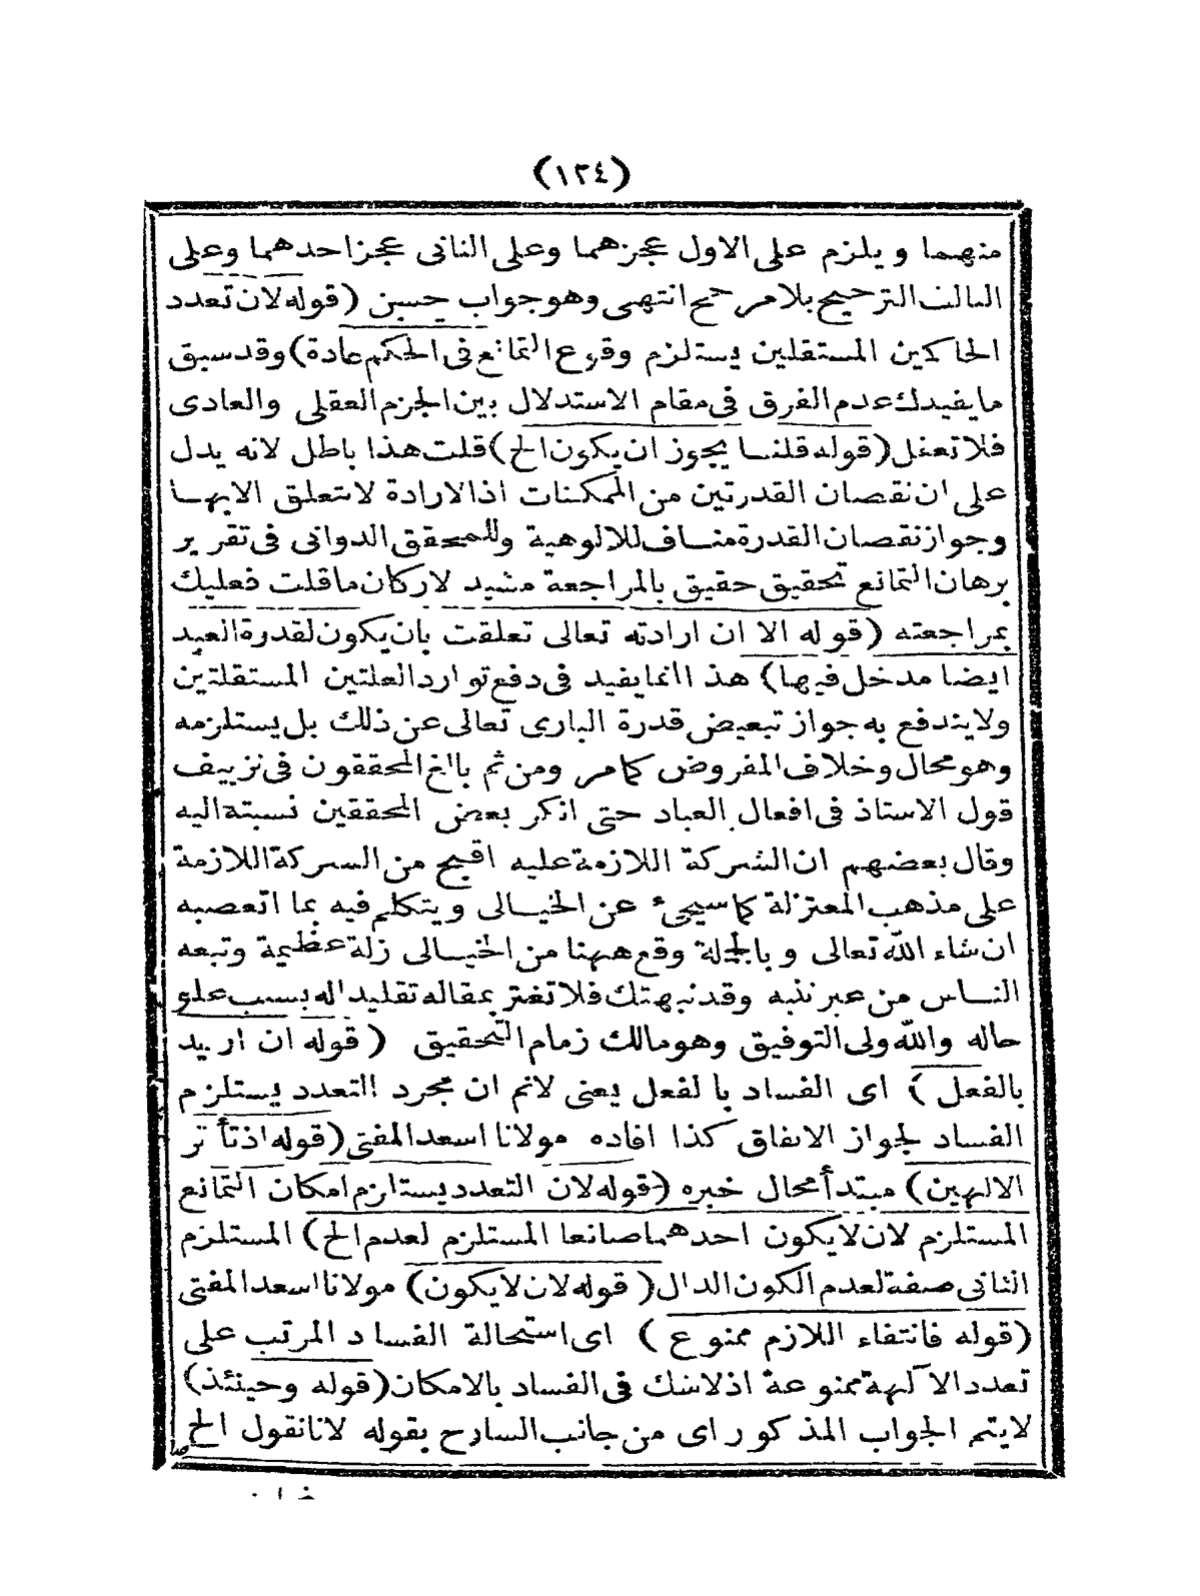 (١٣٤)
منهما ويلزم على الاول عجزهما وعلى الثانى عجز احدهما وعلى
الثالث الترجيح بلا مرجح انتهى وهو جواب حسن (قوله لان تعدد
الحاكمين المستقلين يستلزم وقوع التمانع فى الحكم عادة) وقد سبق
ما يفيدك عدم الفرق فى مقام الاستدلال بين الجزم العقلى والعادى
فلا تغفل (قوله قلنا يجوز ان يكون الخ) قلت هذا باطل لانه يدل
على ان نقصان القدرتين من الممكنات اذ الارادة لا تتعلق الا بها
وجواز نقصان القدرة مناف للالوهية وللمحقق الدوانى فى تقرير
برهان التمانع تحقيق حقيق بالمراجعة مشيد لاركان ما قلت فعليك
بمراجعته (قوله الا ان ارادته تعالى تعلقت بان يكون لقدرة العبد
ايضا مدخل فيها) هذا انما يفيد فى دفع توارد العلتين المستقلتين
ولا يندفع به جواز تبعيض قدرة البارى تعالى عن ذلك بل يستلزمه
وهو محال وخلاف المفروض كما مر ومن ثم بالغ المحققون فى تزييف
قول الاستاذ فى افعال العباد حتى انكر بعض المحققين نسبته اليه
وقال بعضهم ان الشركة اللازمة عليه اقبح من الشركة اللازمة
على مذهب المعتزلة كما سيجئ عن الخيالى ويتكلم فيه بما اتعصبه
ان شاء الله تعالى وبالجملة وقع ههنا من الخيالى زلة عظيمة وتبعه
الناس من غير نذبه وقد نبهتك فلا تغتر بمقاله تقليدا له بسبب علو
حاله والله ولى التوفيق وهو مالك زمام التحقيق (قوله ان اريد
بالفعل) اى الفساد بالفعل يعنى لانم ان مجرد التعدد يستلزم
الفساد لجواز الاتفاق كذا افاده مولانا اسعد المفتى (قوله اذ تأثر
الالهين) مبتدأ محال خبره (قوله لان التعدد يستلزم امكان التمانع
المستلزم لان لا يكون احدهما صانعا المستلزم لعدم الخ) المستلزم
الثانى صفة لعدم الكون الدال (قوله لان لا يكون) مولانا اسعد المفتى
(قوله فانتفاء اللازم ممنوع) اى استحالة الفساد المرتب على
تعدد الآلهة ممنوعة اذ لا شك فى الفساد بالامكان (قوله وحينئذ)
لا يتم الجواب المذكور اى من جانب الشارح بقوله لانا نقول الخ